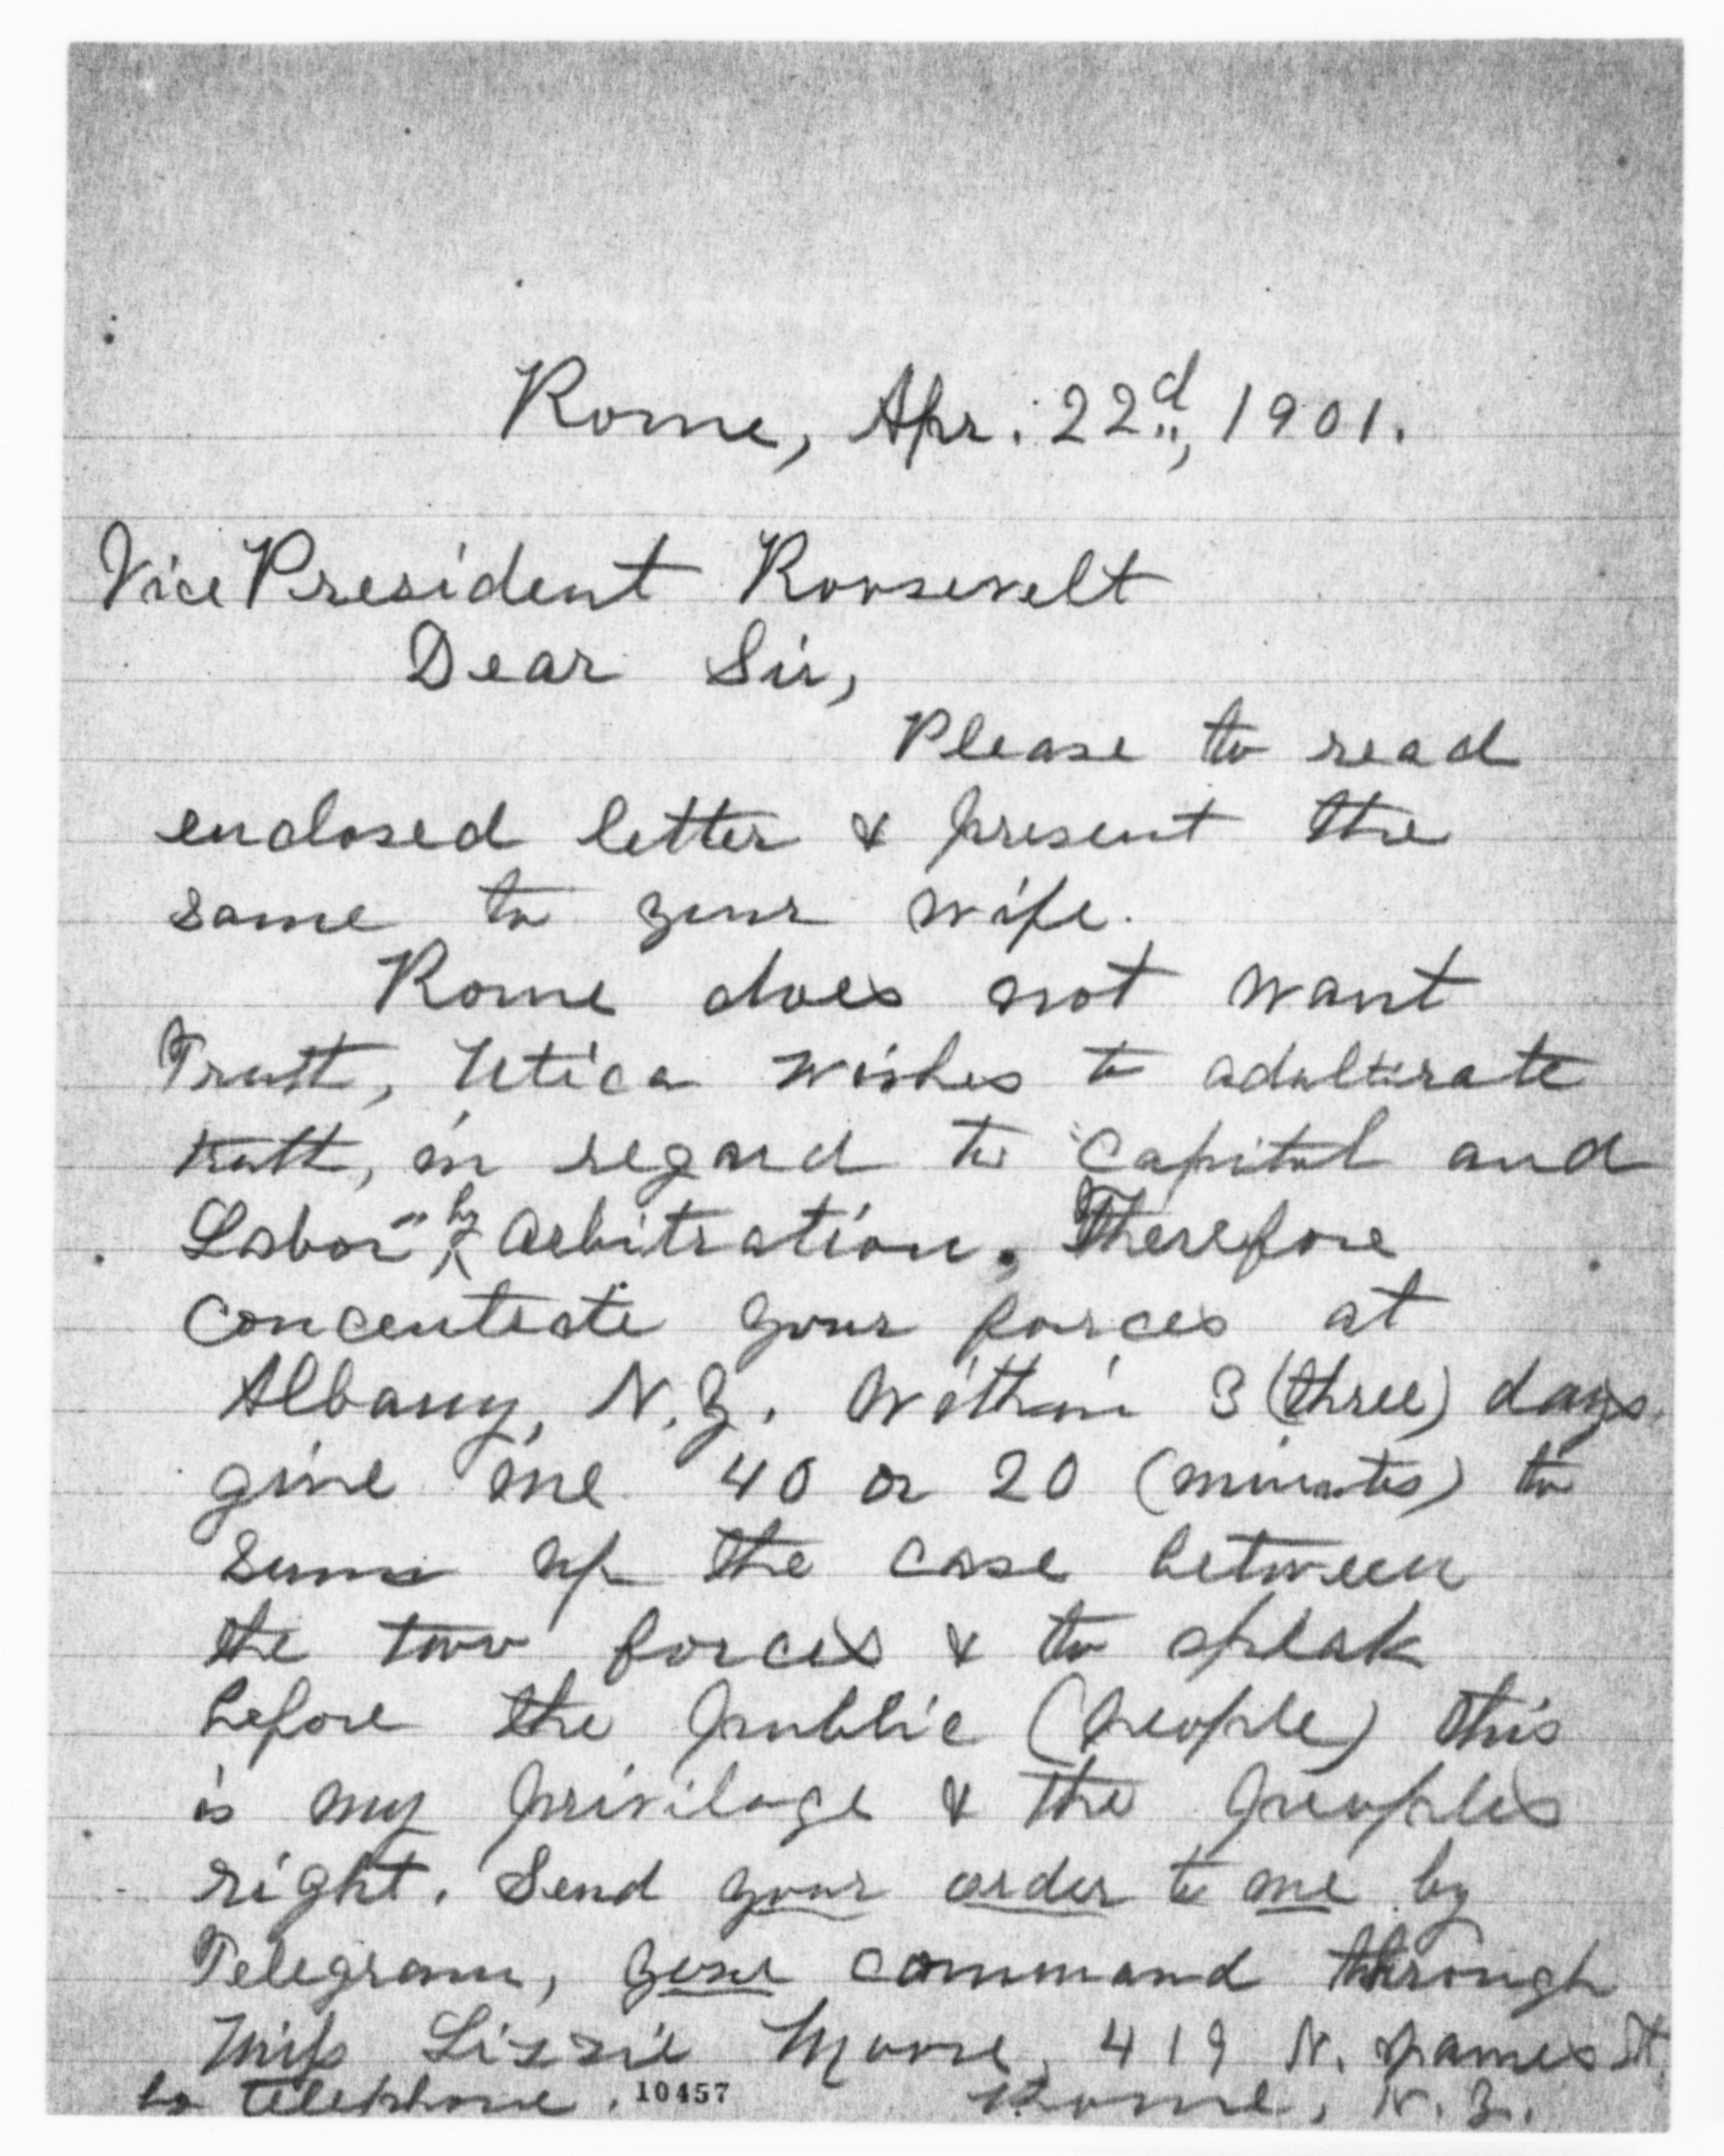 Rome, Apr. 22d, 1901.
Vice President Roosevelt
Dear Sir,
Please to read
enclosed letter & present the
same to your wife.
Rome does not want
Trutt, Utica wishes to adulterate
trutt, in regard to "Capital and
Labor" by Arbitration. Therefore
concentrate your forces at
Albany, N.Y. Within 3 (three) days.
give me 40 or 20 (minutes) to
sum up the case between
the two forces & to speak
before the public (people) this
is my privilage & the peoples
right. Send your order to me by
Telegram, your command through
Miss Lizzie Moore, 419 N. James St.
by telephone. 10457 Rome, N.Y.